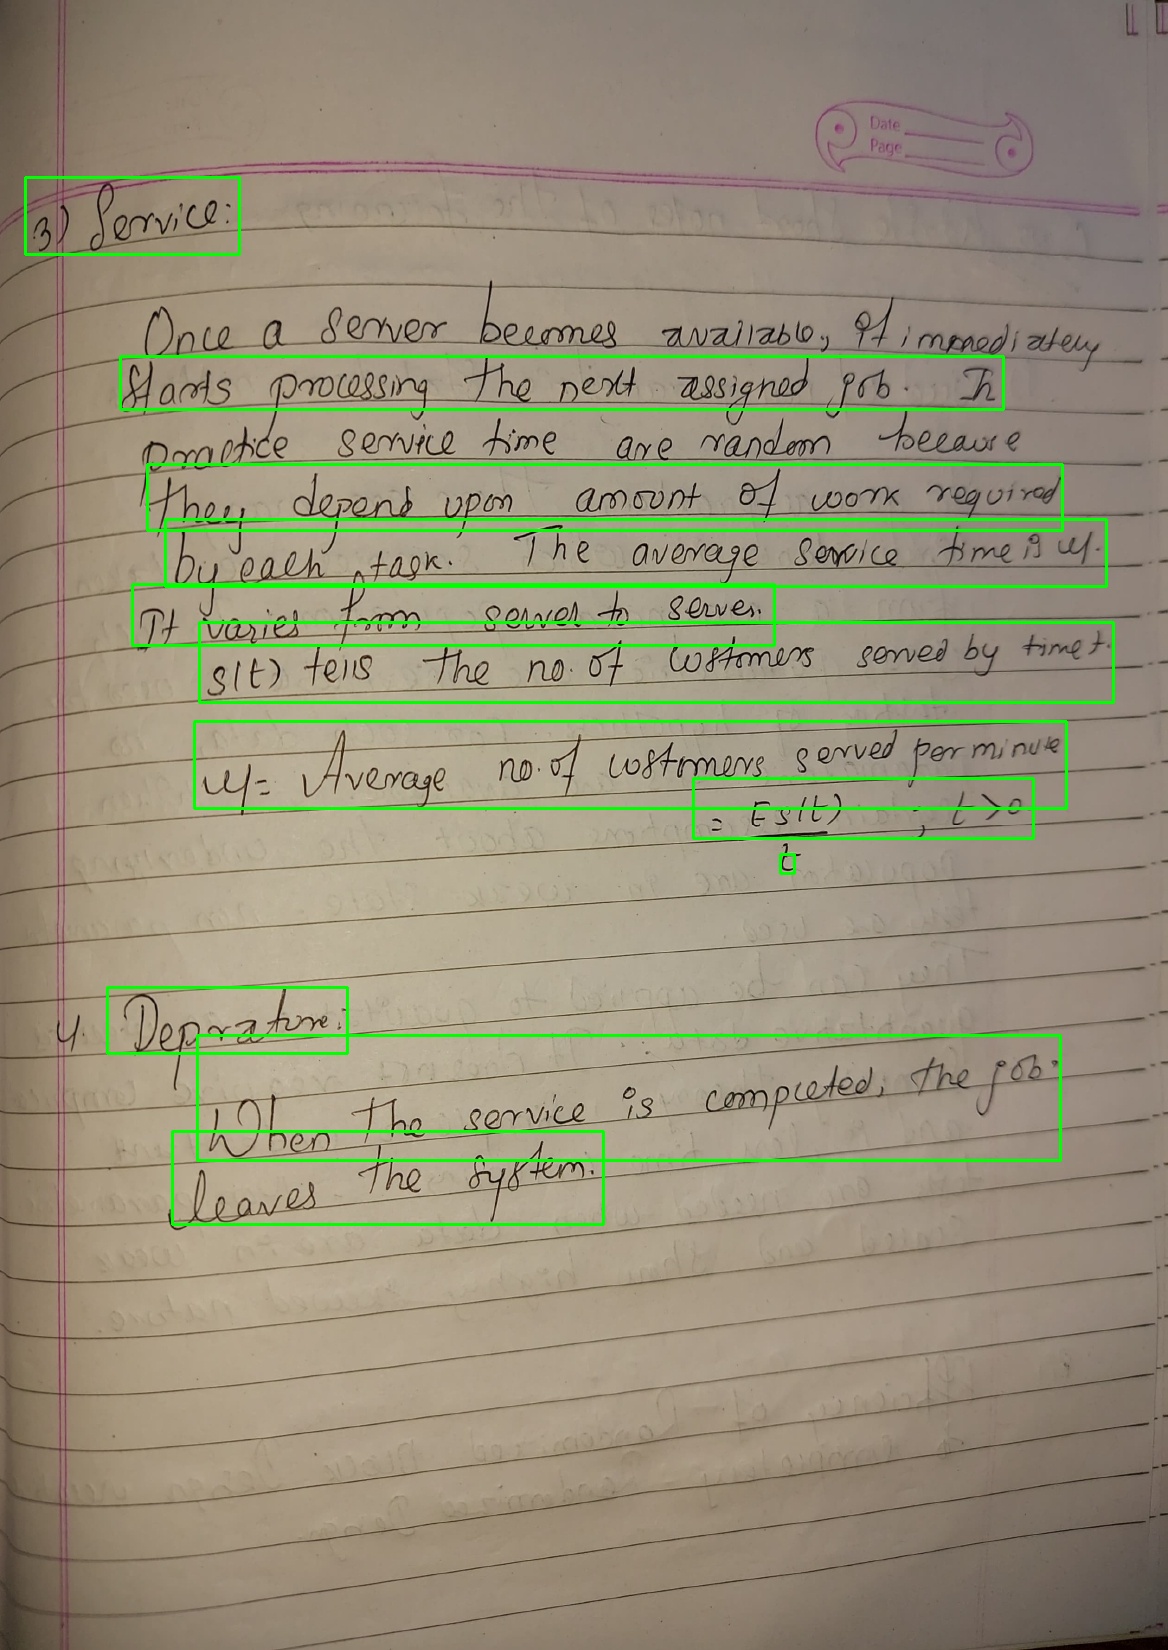 Date
Page
3) Service:
Once a server becomes available, it immediately
starts processing the next assigned job. In
practice service time are random because
they depend upon amount of work required
by each task. The average service time is μ.
It varies from server to server.
s(t) tells the no. of customers served by time t.
μ = Average no. of customers served per minute
= E s(t) ; t > 0
t
4. Deprature:
When the service is completed, the job
leaves the system.